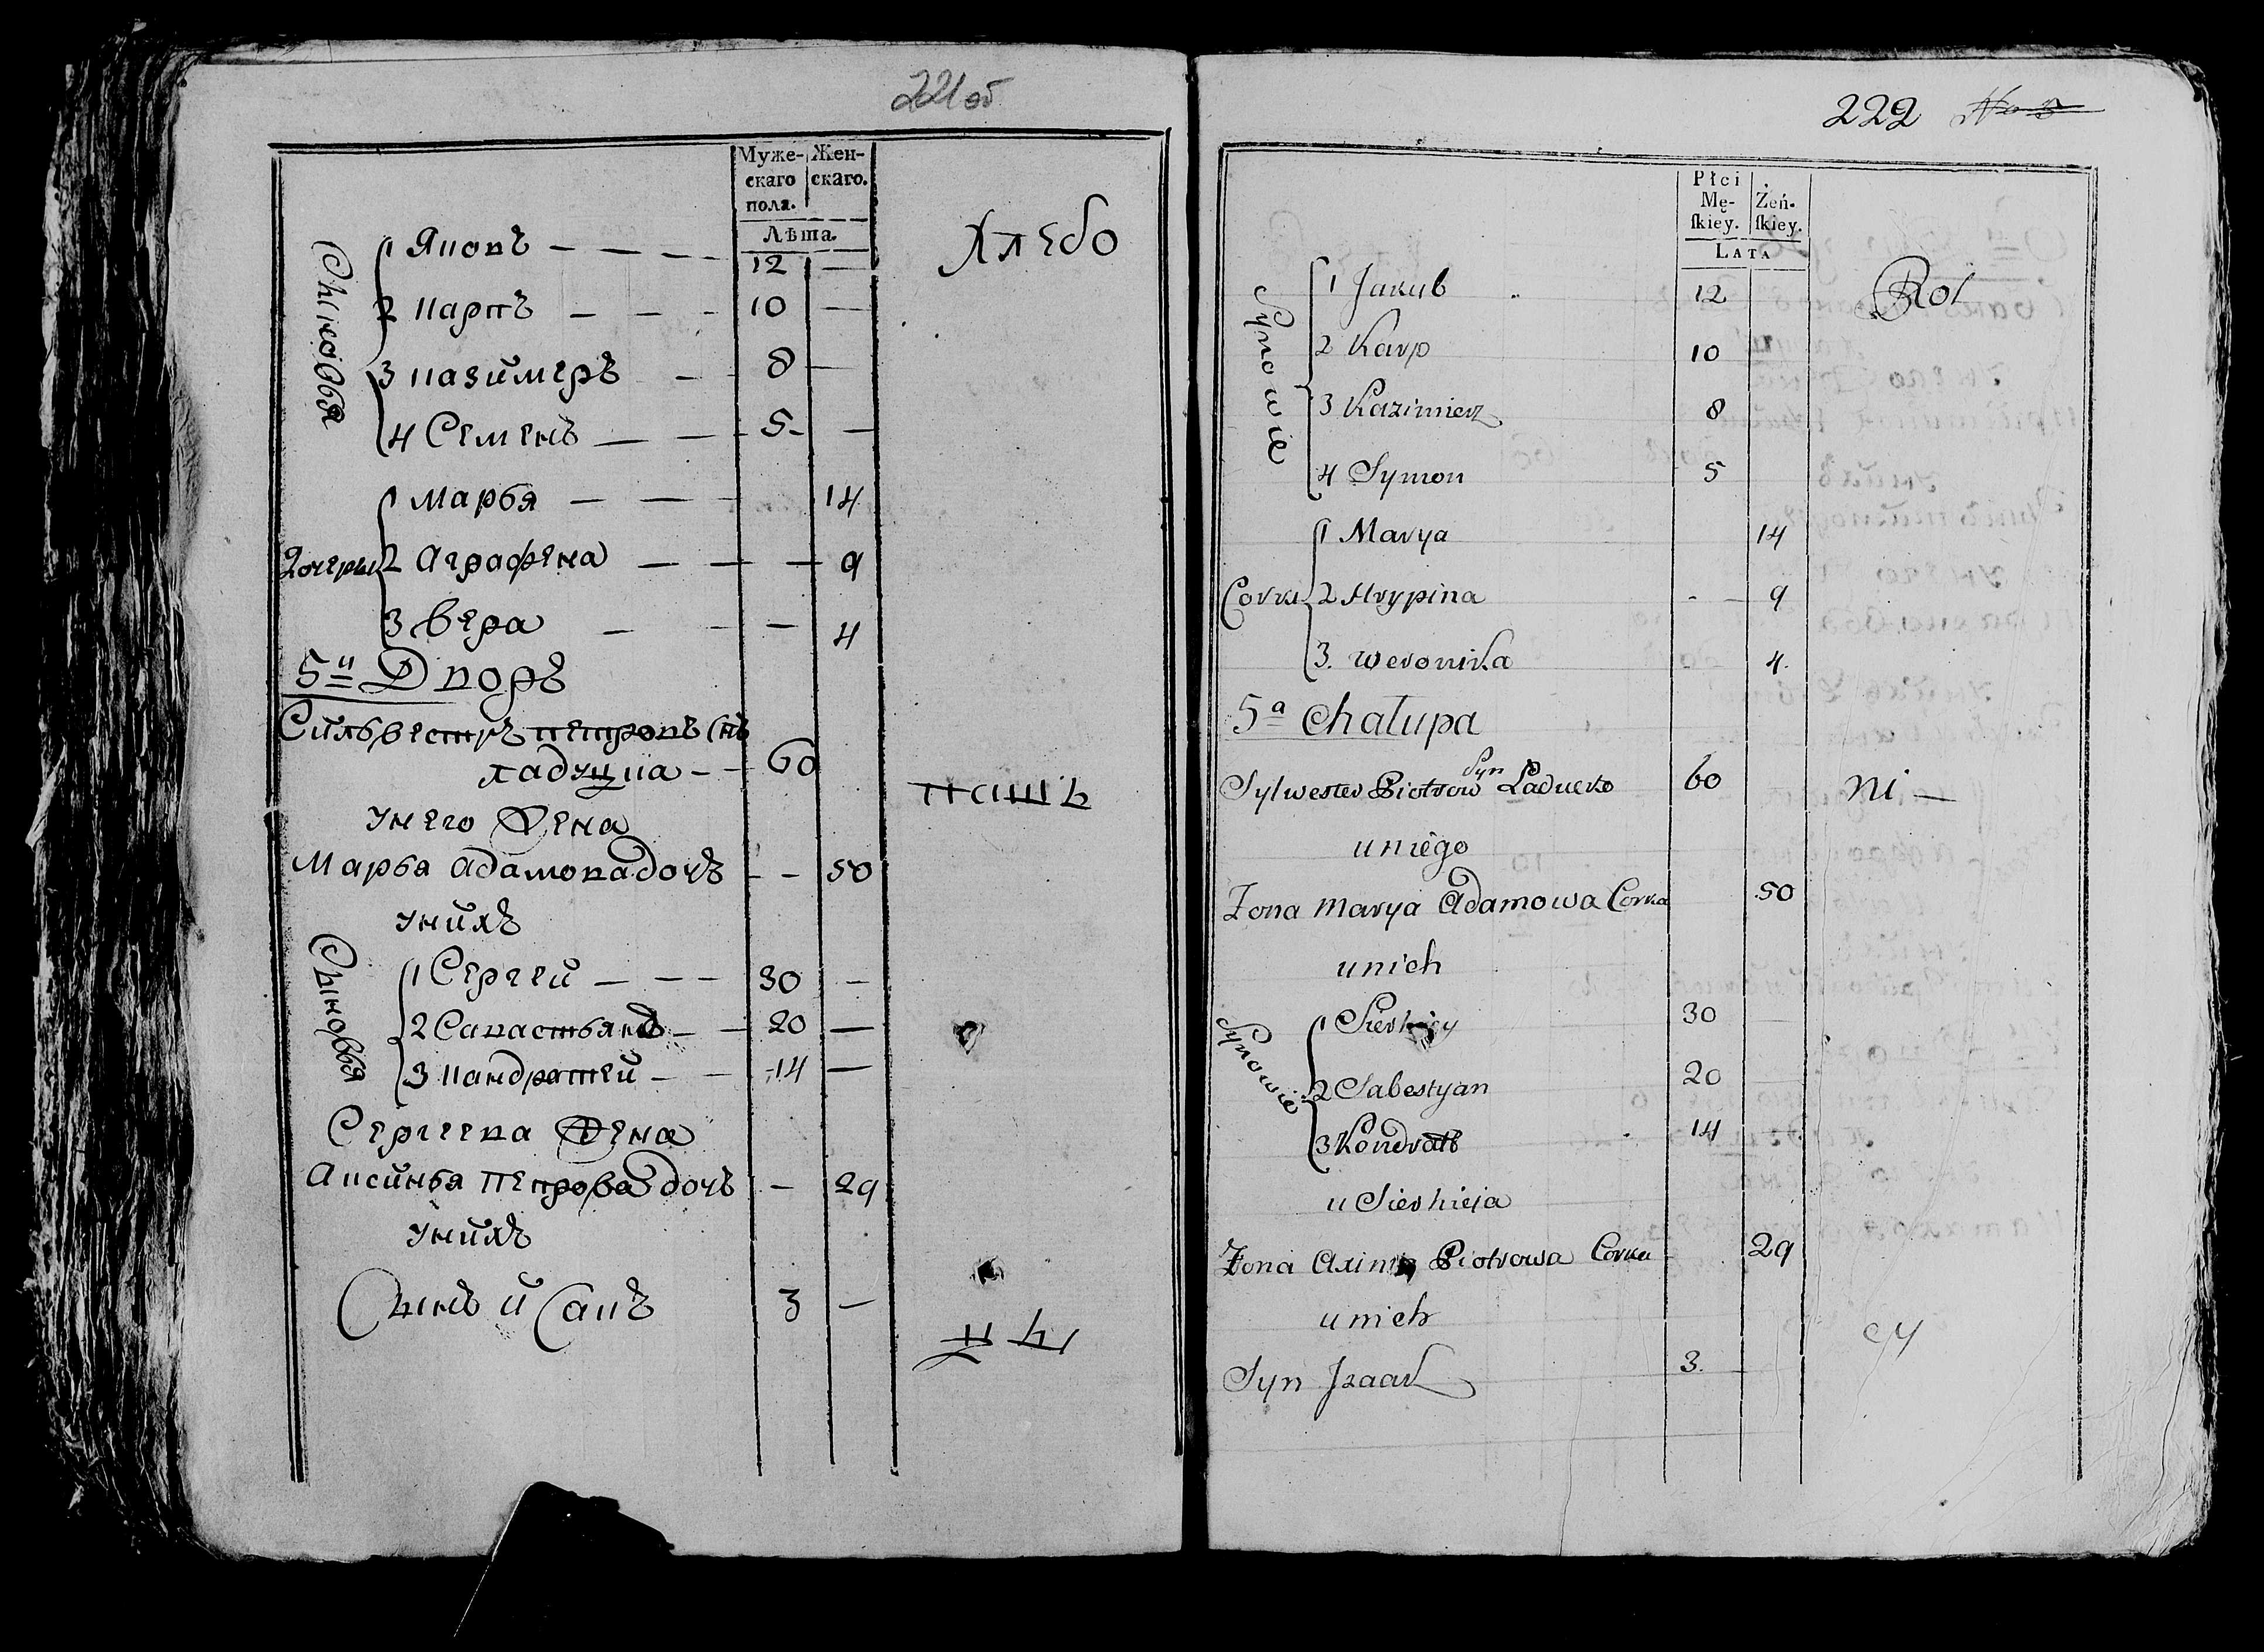 221 об
Муже-
скаго
пола.
Жен-
скаго.
Лѣта.
Сыновья
1 Яковъ — — — 12 —
2 карпъ — — - 10 —
3 казимеръ — 8 —
4 Семенъ — — 5 - —
Дочеры
1 Марья — — 14
2 Аграфена — — — 9
3 Вера — — — 4
Хлебо
5й Дворъ
Сильвестръ петровъ снъ
ладуцка - - 60
унего Жена
Марья адамова дочъ - - 50
унихъ
Сыновья
1 Сергей — — — 30 —
2 Савастьянъ — — 20 —
3 кандратей — — 14 —
Сергеева Жена
Аксинья Петрова дочъ — 29
унихъ
Сынъ исакъ 3 —
паш
цы
222 No 5
Płci
Mę-
ſkiey.
Żeń-
ſkiey.
LATA
Synowie
1 Jakub 12
2 Karp 10
3 Kazimierz 8
4 Symon 5
Corki
1 Marya 14
2 Hrypina - — 9
3. Weronika 4.
Rol
5a Chałupa
Sylwester Piotrow Syn Laducko 60
uniego
Żona Marya Adamowa Corka 50
unich
Synowie
1 Sierhiey 30
2 Sabestyan 20
3 Kondratt 14
u Sierhieja
Żona Piotrowa Corka 29
unich
Syn Jzaak 3.
ni —
cy